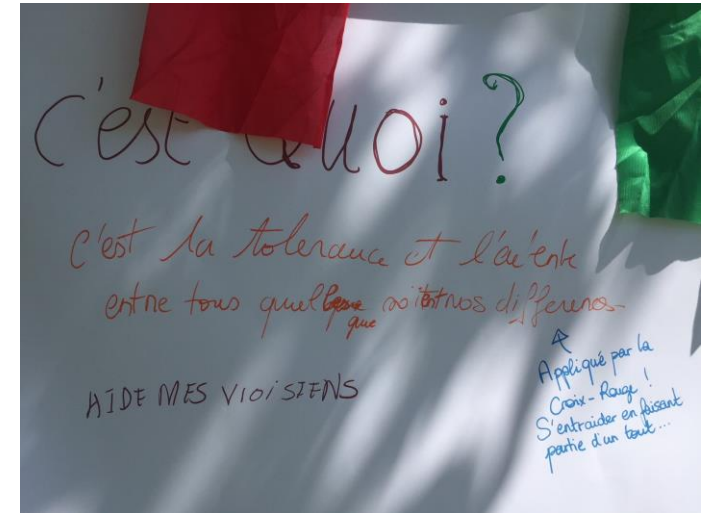 C'est Quoi ?
C'est la tolerance et l'entente
entre tous quelles que soient nos differences
AIDE MES VIOISIENS
Appliqué par la
Croix-Rouge !
S'entraider en faisant
partie d'un tout...